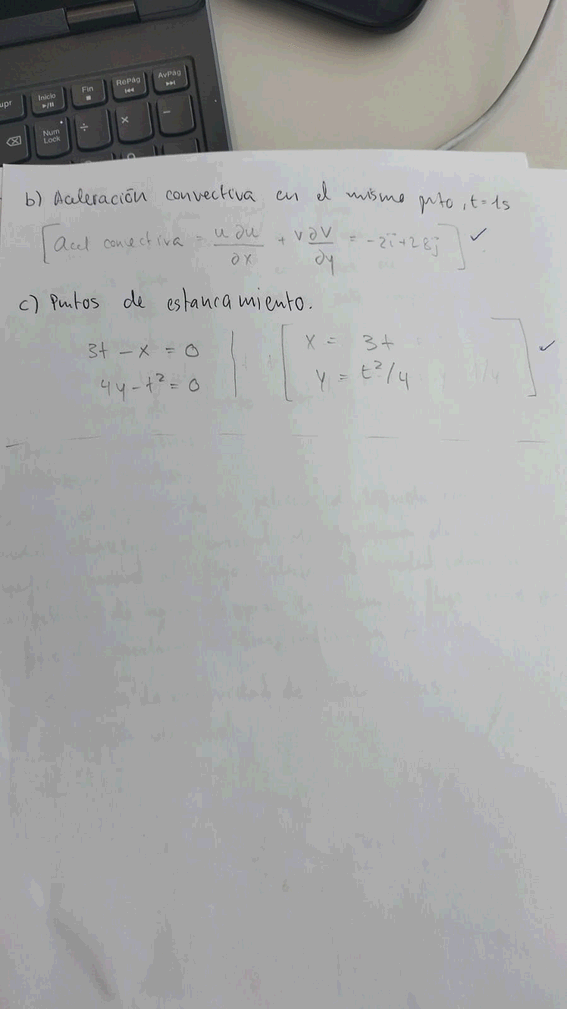 upr
Inicio
Fin
RePág
AvPág
Num
Lock
÷
×
−
b) Aceleración convectiva en el mismo pto, t=1s
[Acel convectiva = u∂u/∂x + v∂v/∂y = -2i+28j] ✓
c) Puntos de estancamiento.
3t - x = 0 | [x = 3t
4y - t² = 0 | y = t²/4] ✓